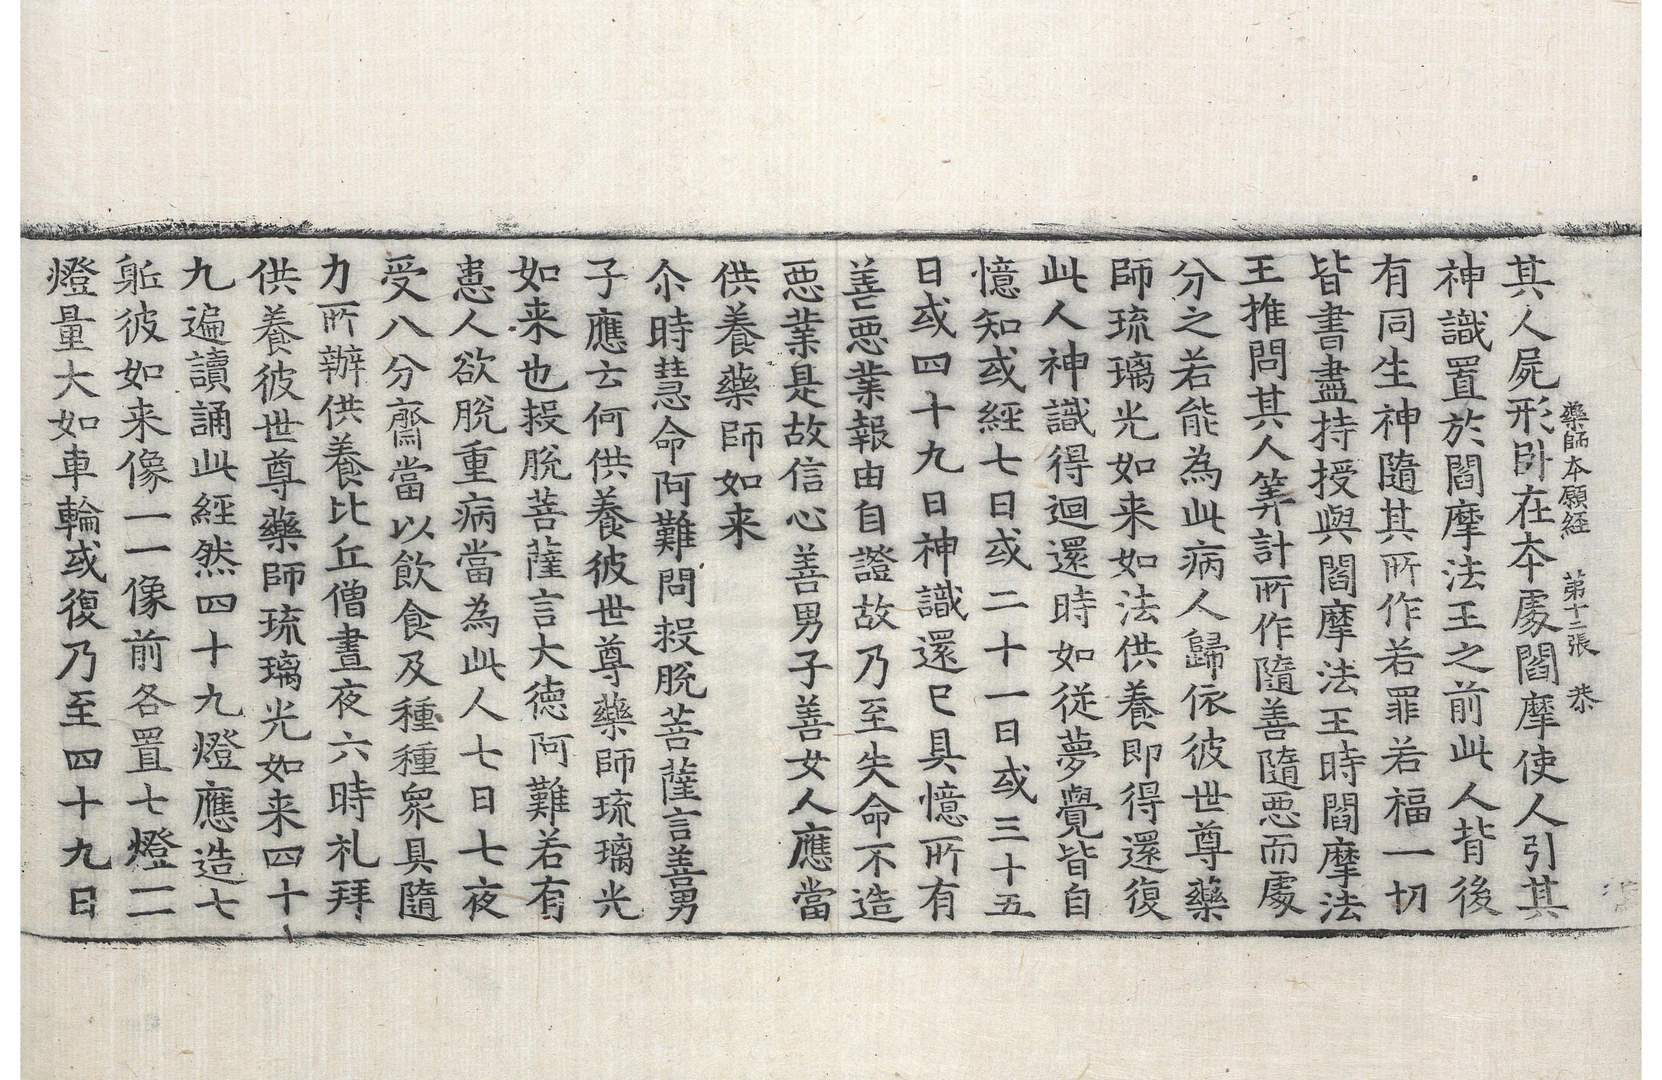 藥師本願經 第十二張 恭
其人屍形卧在本處閻摩使人引其
神識置於閻摩法王之前此人背後
有同生神隨其所作若罪若福一切
皆書盡持授與閻摩法王時閻摩法
王推問其人筭計所作隨善隨惡而處
分之若能為此病人歸依彼世尊藥
師琉璃光如来如法供養即得還復
此人神識得迴還時如従夢覺皆自
憶知或經七日或二十一日或三十五
日或四十九日神識還已具憶所有
善惡業報由自證故乃至失命不造
惡業是故信心善男子善女人應當
供養藥師如来
尒時慧命阿難問救脫菩薩言善男
子應云何供養彼世尊藥師琉璃光
如来也救脫菩薩言大德阿難若有
患人欲脫重病當為此人七日七夜
受八分齋當以飲食及種種眾具隨
力所辦供養比丘僧晝夜六時礼拜
供養彼世尊藥師琉璃光如来四十
九遍讀誦此經然四十九燈應造七
軀彼如来像一一像前各置七燈一一
燈量大如車輪或復乃至四十九日